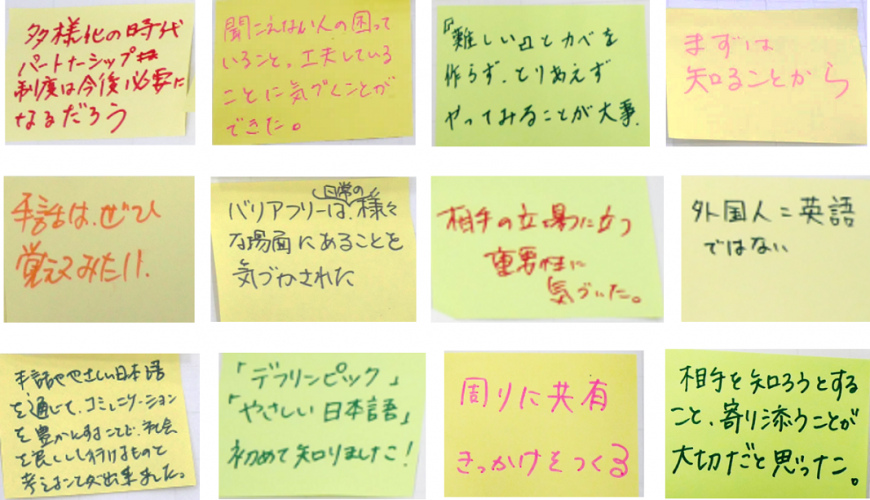 多様化の時代
パートナーシップ
制度は今後必要に
なるだろう
聞こえない人の困って
いること、工夫している
ことに気づくことが
できた。
「難しい」とカベを
作らず、とりあえず
やってみることが大事.
まずは
知ることから
手話は、ぜひ
覚えてみたい.
バリアフリーは、日常の様々
な場面にあることを
気づかされた
相手の立場に立つ
重要性に
気づいた。
外国人=英語
ではない
手話ややさしい日本語
を通じて、コミュニケーション
を豊かにすることで、社会
を良くして行けるものと
考えることが出来ました。
「デフリンピック」
「やさしい日本語」
初めて知りました!
周りに共有
きっかけをつくる
相手を知ろうとする
こと、寄り添うことが
大切だと思った。